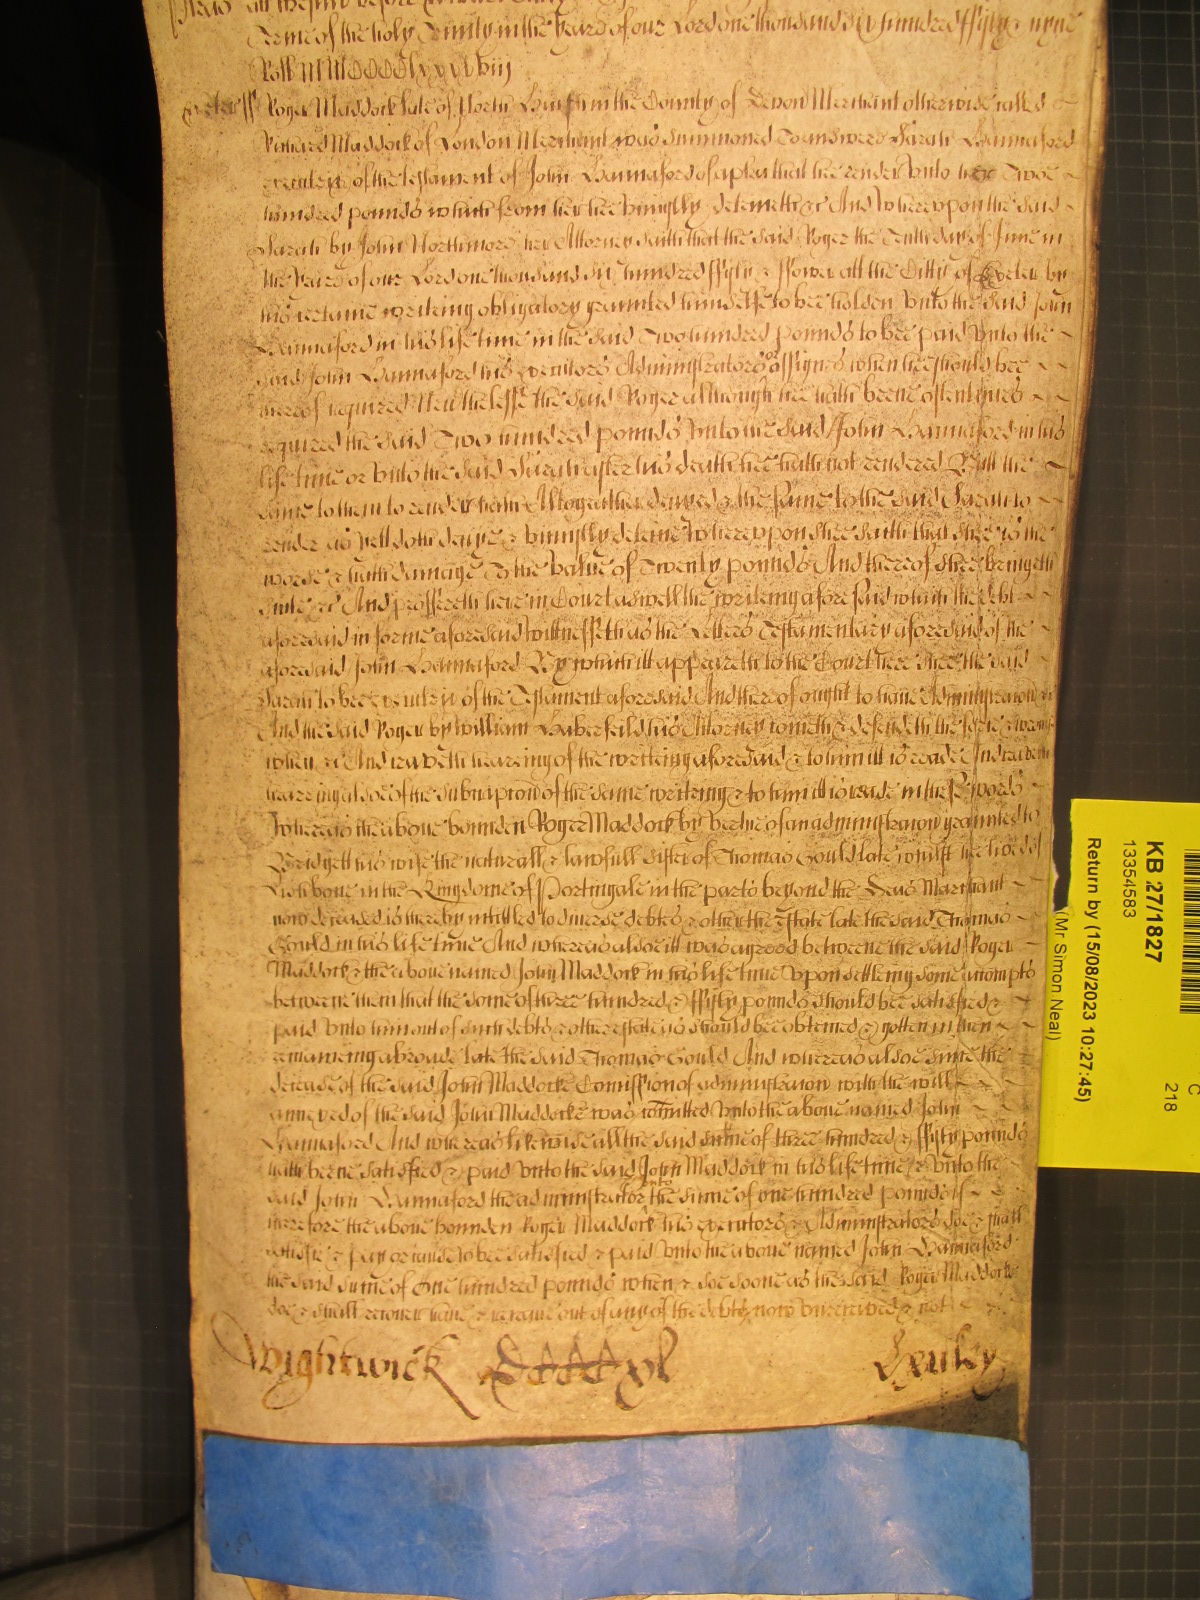 Pleas att
Terme of the holy Trinity in the Yeard of our Lord one thousand six hundred ffifty & nyne
Roll
Exeter ss Roger Maddock late of North in the County of Devon Merchant otherwise called
Richard Maddock of London Merchant was summoned To answere Sarah Hannaford
executrix of the testament of John Hannaford of a plea that hee render unto her Twoe
hundred pounds which from her hee uniustly deteineth &c And Whereupon the said
Sarah by John Northmore her Attorney saith that the said Roger the Tenth day of June in
the Yeare of our Lord one thousand six hundred ffifty & ffower att the Citty of Exeter by
his certaine writeing obligatory graunted himselfe to bee holden Unto the said John
Hannaford in his life time in the said Two hundred pounds to bee paid Unto the
said John Hannaford his executors Administrators or assignes when hee should bee
thereof required Neverthelesse the said Roger although hee hath beene oftentymes
required the said Two hundred pounds Unto the said John Hannaford in his
life time or unto the said Sarah after his death hee hath not rendered Butt the
same to them to render hath Altogeather denyed & the same to the said Sarah to
render as yett doth denye & uniustly deteine Whereupon shee saith that shee is the
worse & hath damage To the value of Twenty pounds And thereof shee bringeth
suite &c And proffereth here in Court aswell the writeing aforesaid which the debt
aforesaid in forme aforesaid wittnesseth as the Letters Testamentary aforesaid of the
aforesaid John Hannaford By which itt appeareth to the Court here shee the said
Sarah to bee executrix of the Testament aforesaid And thereof ought to have Administracion &c
And the said Roger by William Haberfeild his Attorney cometh & defendeth the force & wronge
when &c And craveth heareing of the writeing aforesaid & to him itt is reade And craveth
heareing alsoe of the subscripcion of the same writeing & to him itt is reade in these words
Whereas the above bounden Roger Maddock by vertue of an administracion graunted to
Bridgett his wife the naturall & lawfull sister of Thomas Gould late whilst hee lived of
Lishbone in the Kingdome of Portingale in the parts beyond the Seas Marchant
now deceased is thereby intitled to diverse debts & other the estate late the said Thomas
Gould in his life time And whereas alsoe itt was agreed betweene the said Roger
Maddock & the above named John Maddock in his life time upon setling some accompts
betweene them that the some of three hundred & ffifty pounds should bee satisfied &
paid unto him out of such debts & other estate as should bee obteined & gotten in then
remaineing abroade late the said Thomas Gould And whereas alsoe since the
decease of the said John Maddocke Comission of administracion with the will
annexed of the said John Maddocke was comitted Unto the above named John
Hannaford And whereas likewise all the said summe of three hundred & ffifty pounds
hath beene satisfied & paid unto the said John Maddock in his life time & unto the
said John Hannaford the administrator unto the summe of one hundred pounds if
therefore the above bounden Roger Maddock his executors & Administrators doe & shall
satisfie & pay or cause to bee satisfied & paid unto the above named John Hannaford
the said summe of One hundred pounds when & soe soone as the said Roger Maddocke
doe & shall recover have & receave out of any of the debts now unreceived & not
Wightwick
KB 27/1827
13354583
Return by (15/08/2023 10:27:45)
(Mr Simon Neal)
C
218